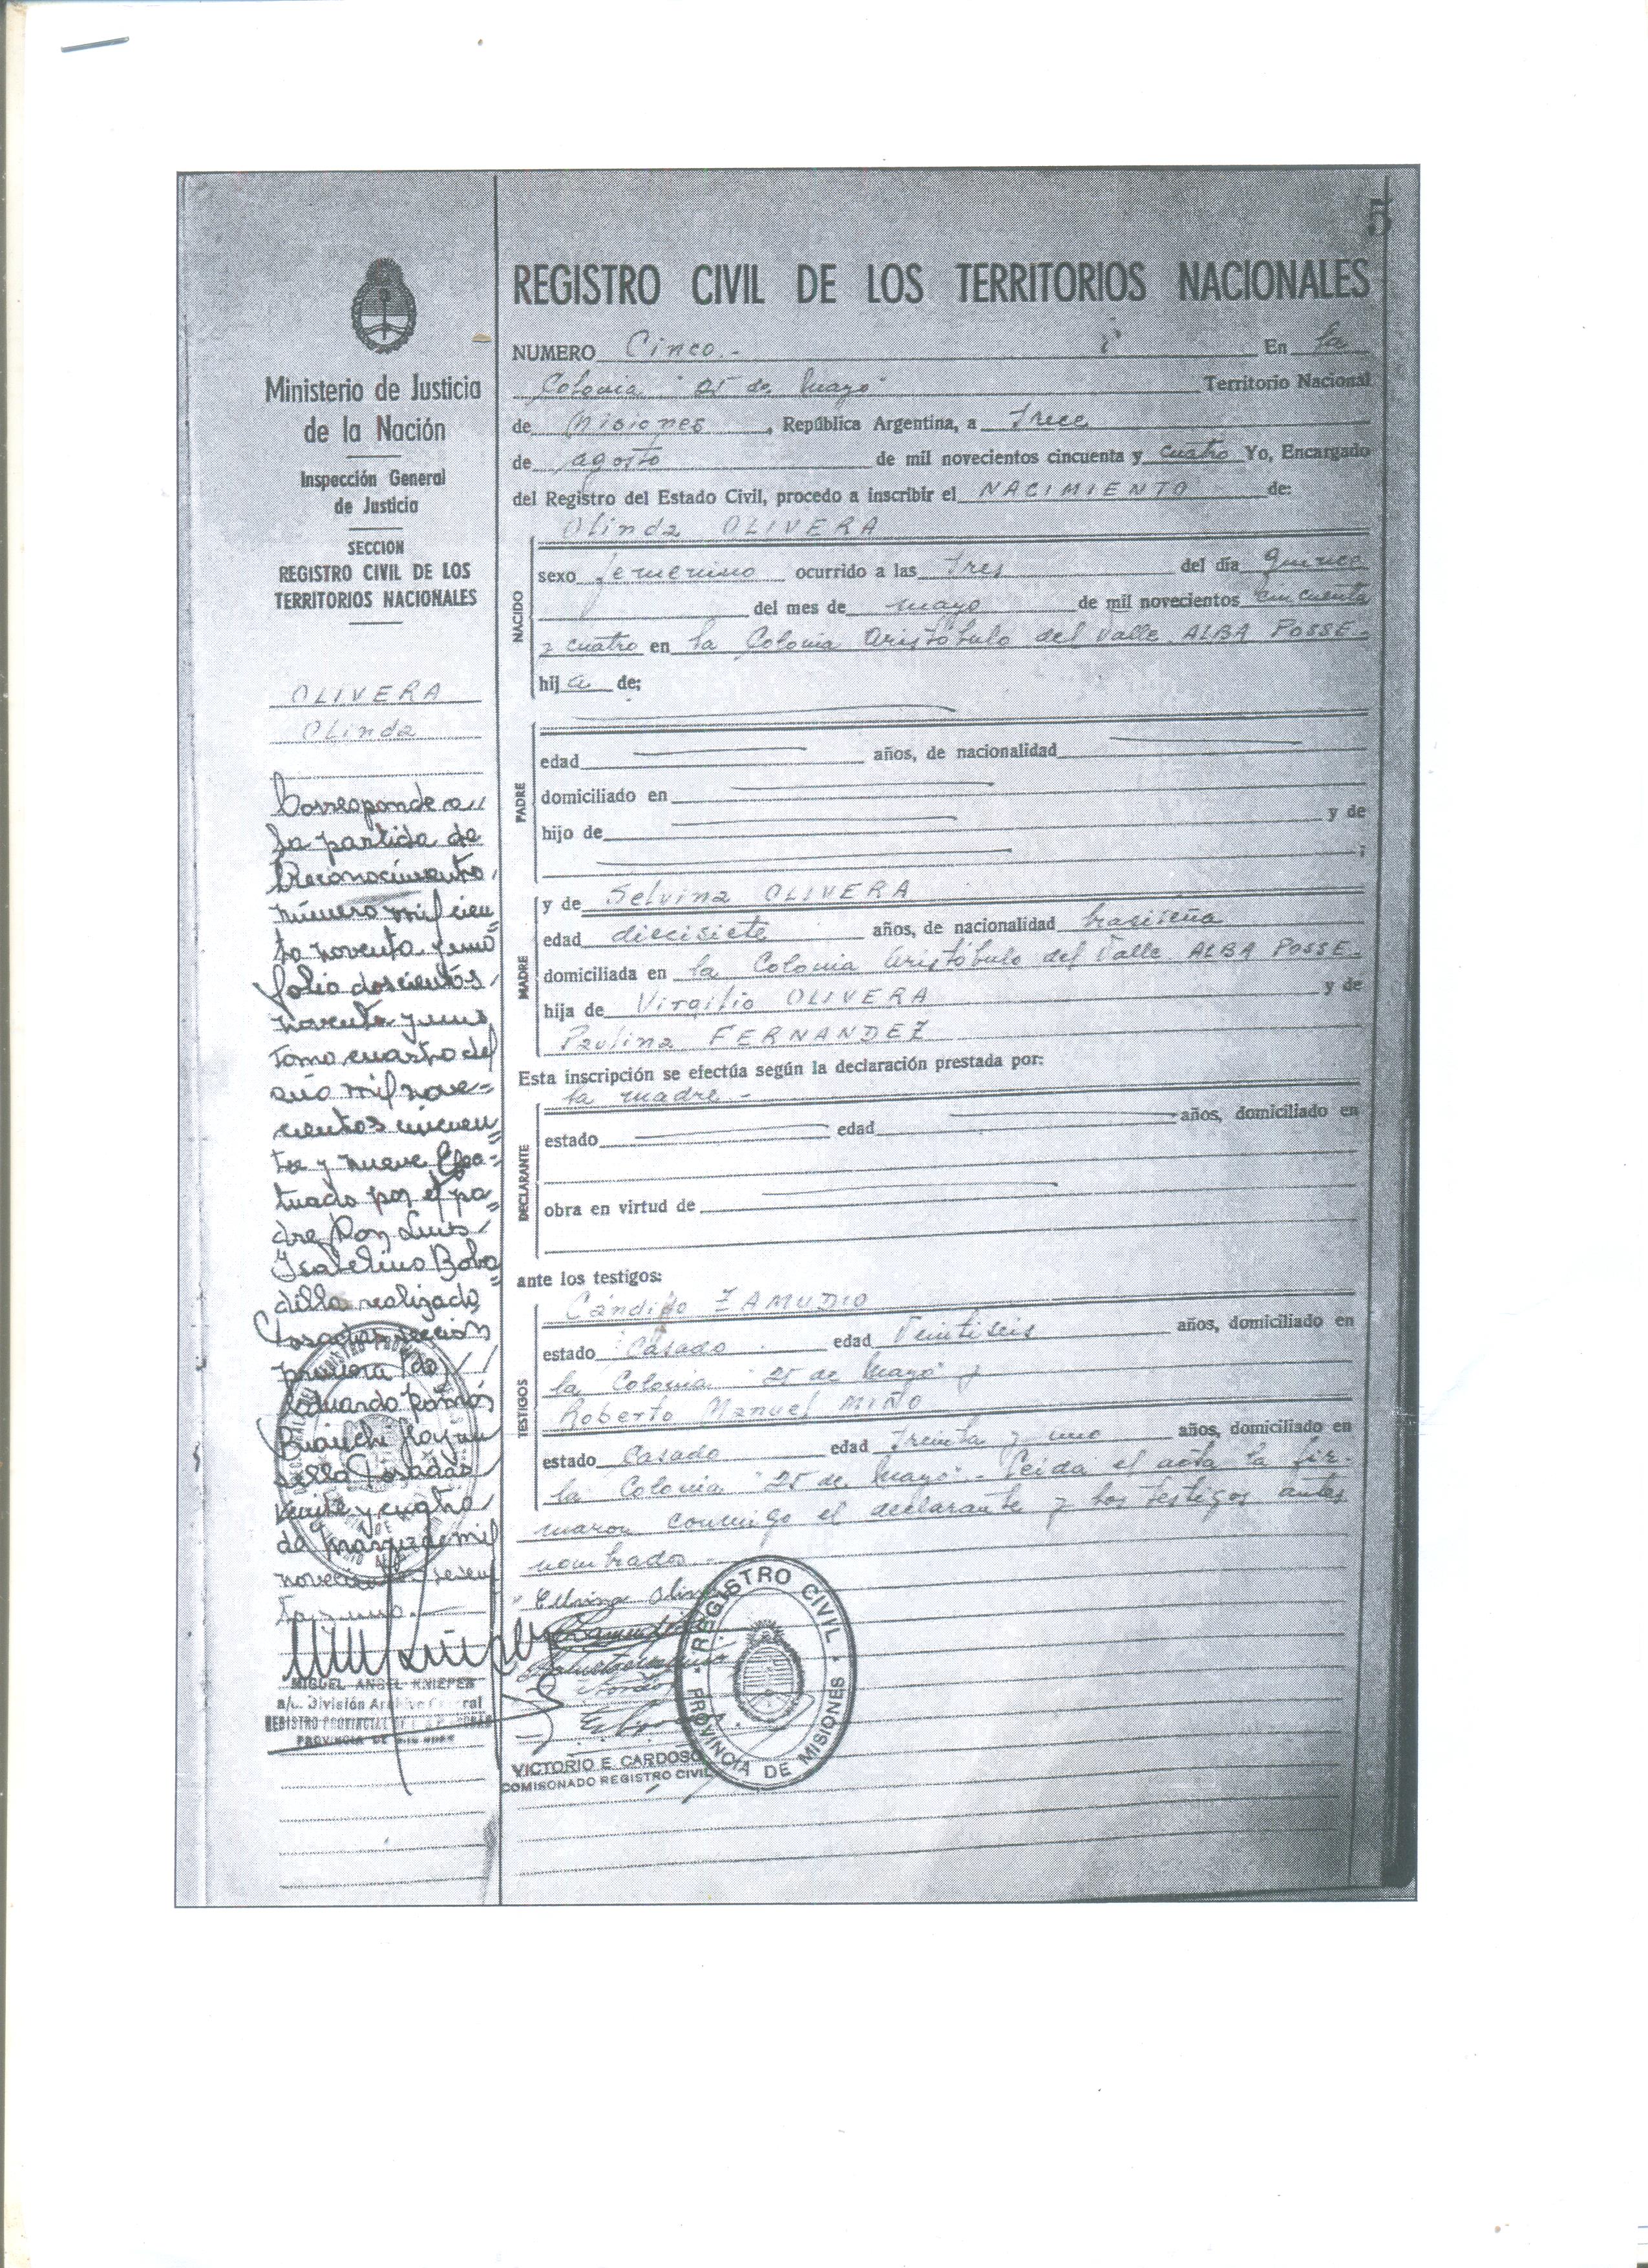 5
REGISTRO CIVIL DE LOS TERRITORIOS NACIONALES
NUMERO Cinco.- En la
Colonia "25 de Mayo" Territorio Nacional
de Misiones, República Argentina, a trece
de agosto de mil novecientos cincuenta y cuatro Yo, Encargado
del Registro del Estado Civil, procedo a inscribir el NACIMIENTO de:
Olinda OLIVERA
NACIDO
sexo femenino ocurrido a las tres del día quince
del mes de mayo de mil novecientos cincuenta
y cuatro en la Colonia Aristóbulo del Valle ALBA POSSE.-
hija de;
PADRE
edad años, de nacionalidad
domiciliado en
hijo de y de
;
MADRE
y de Selvina OLIVERA
edad diecisiete años, de nacionalidad brasileña
domiciliada en la Colonia Aristóbulo del Valle ALBA POSSE.-
hija de Virgilio OLIVERA y de
Paulina FERNANDEZ
Esta inscripción se efectúa según la declaración prestada por:
la madre.-
DECLARANTE
estado edad años, domiciliado en
obra en virtud de
ante los testigos:
TESTIGOS
Cándido ZAMUDIO
estado Casado edad Veintiseis años, domiciliado en
la Colonia "25 de Mayo" y
Roberto Manuel MIÑO
estado Casado edad treinta y uno años, domiciliado en
la Colonia "25 de Mayo".- Leida el acta la fir-
maron conmigo el declarante y los testigos antes
nombrados.-
REGISTRO CIVIL
PROVINCIA DE MISIONES
VICTORIO E. CARDOSO
COMISONADO REGISTRO CIVIL
Ministerio de Justicia
de la Nación
Inspección General
de Justicia
SECCION
REGISTRO CIVIL DE LOS
TERRITORIOS NACIONALES
OLIVERA
Olinda
Corresponde a
la partida de
Reconocimiento
número mil cien
to noventa y uno
folio doscientos
noventa y uno
tomo cuarto del
año mil nove=
cientos cincuen=
ta y nueve Efec=
tuado por el pa=
dre Don Luis
Isabelino Boba=
dilla realizado
Posadas sección
primera fdo
Eduardo Ramós
Bianchi Hay un
sello Posadas
veinte y cuatro
de marzo de mil
novecientos sesen
ta y uno.-
MIGUEL ANGEL KNIEPER
a/c. División Archivo General
REGISTRO PROVINCIAL DE LAS PERSONAS
PROVINCIA DE MISIONES